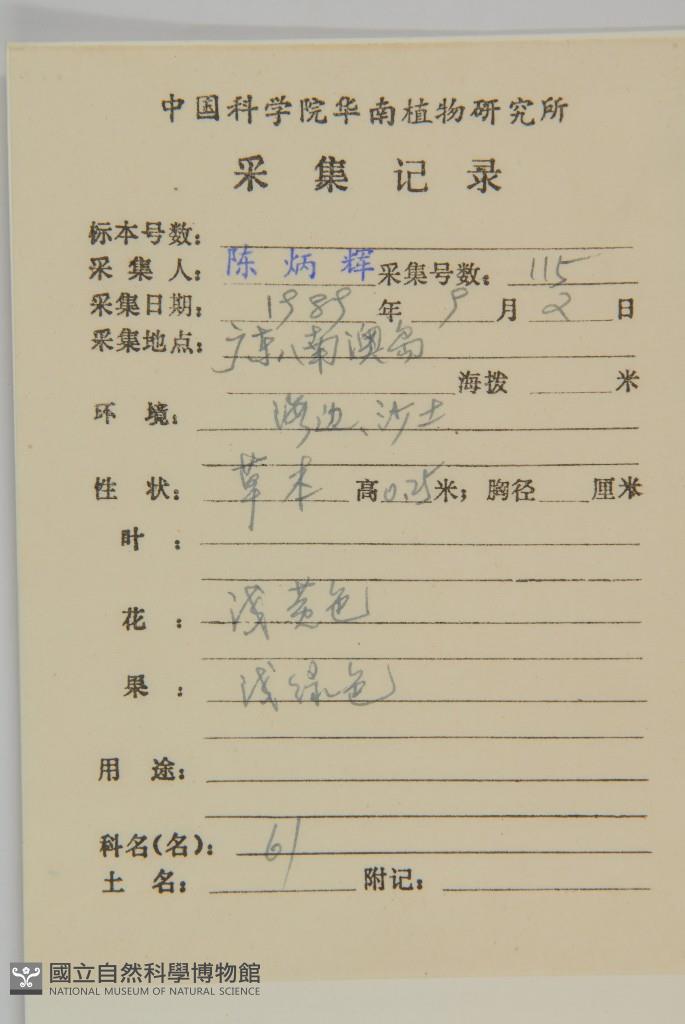 中国科学院华南植物研究所
采集记录
标本号数：
采集人：陈炳辉 采集号数：115
采集日期：1989年9月2日
采集地点：广东、南澳岛
海拨 米
环境：海边、沙土
性状：草本 高0.25米；胸径 厘米
叶：
花：浅黄色
果：浅绿色
用途：
科名(名)：61
土名： 附记：
國立自然科學博物館
NATIONAL MUSEUM OF NATURAL SCIENCE